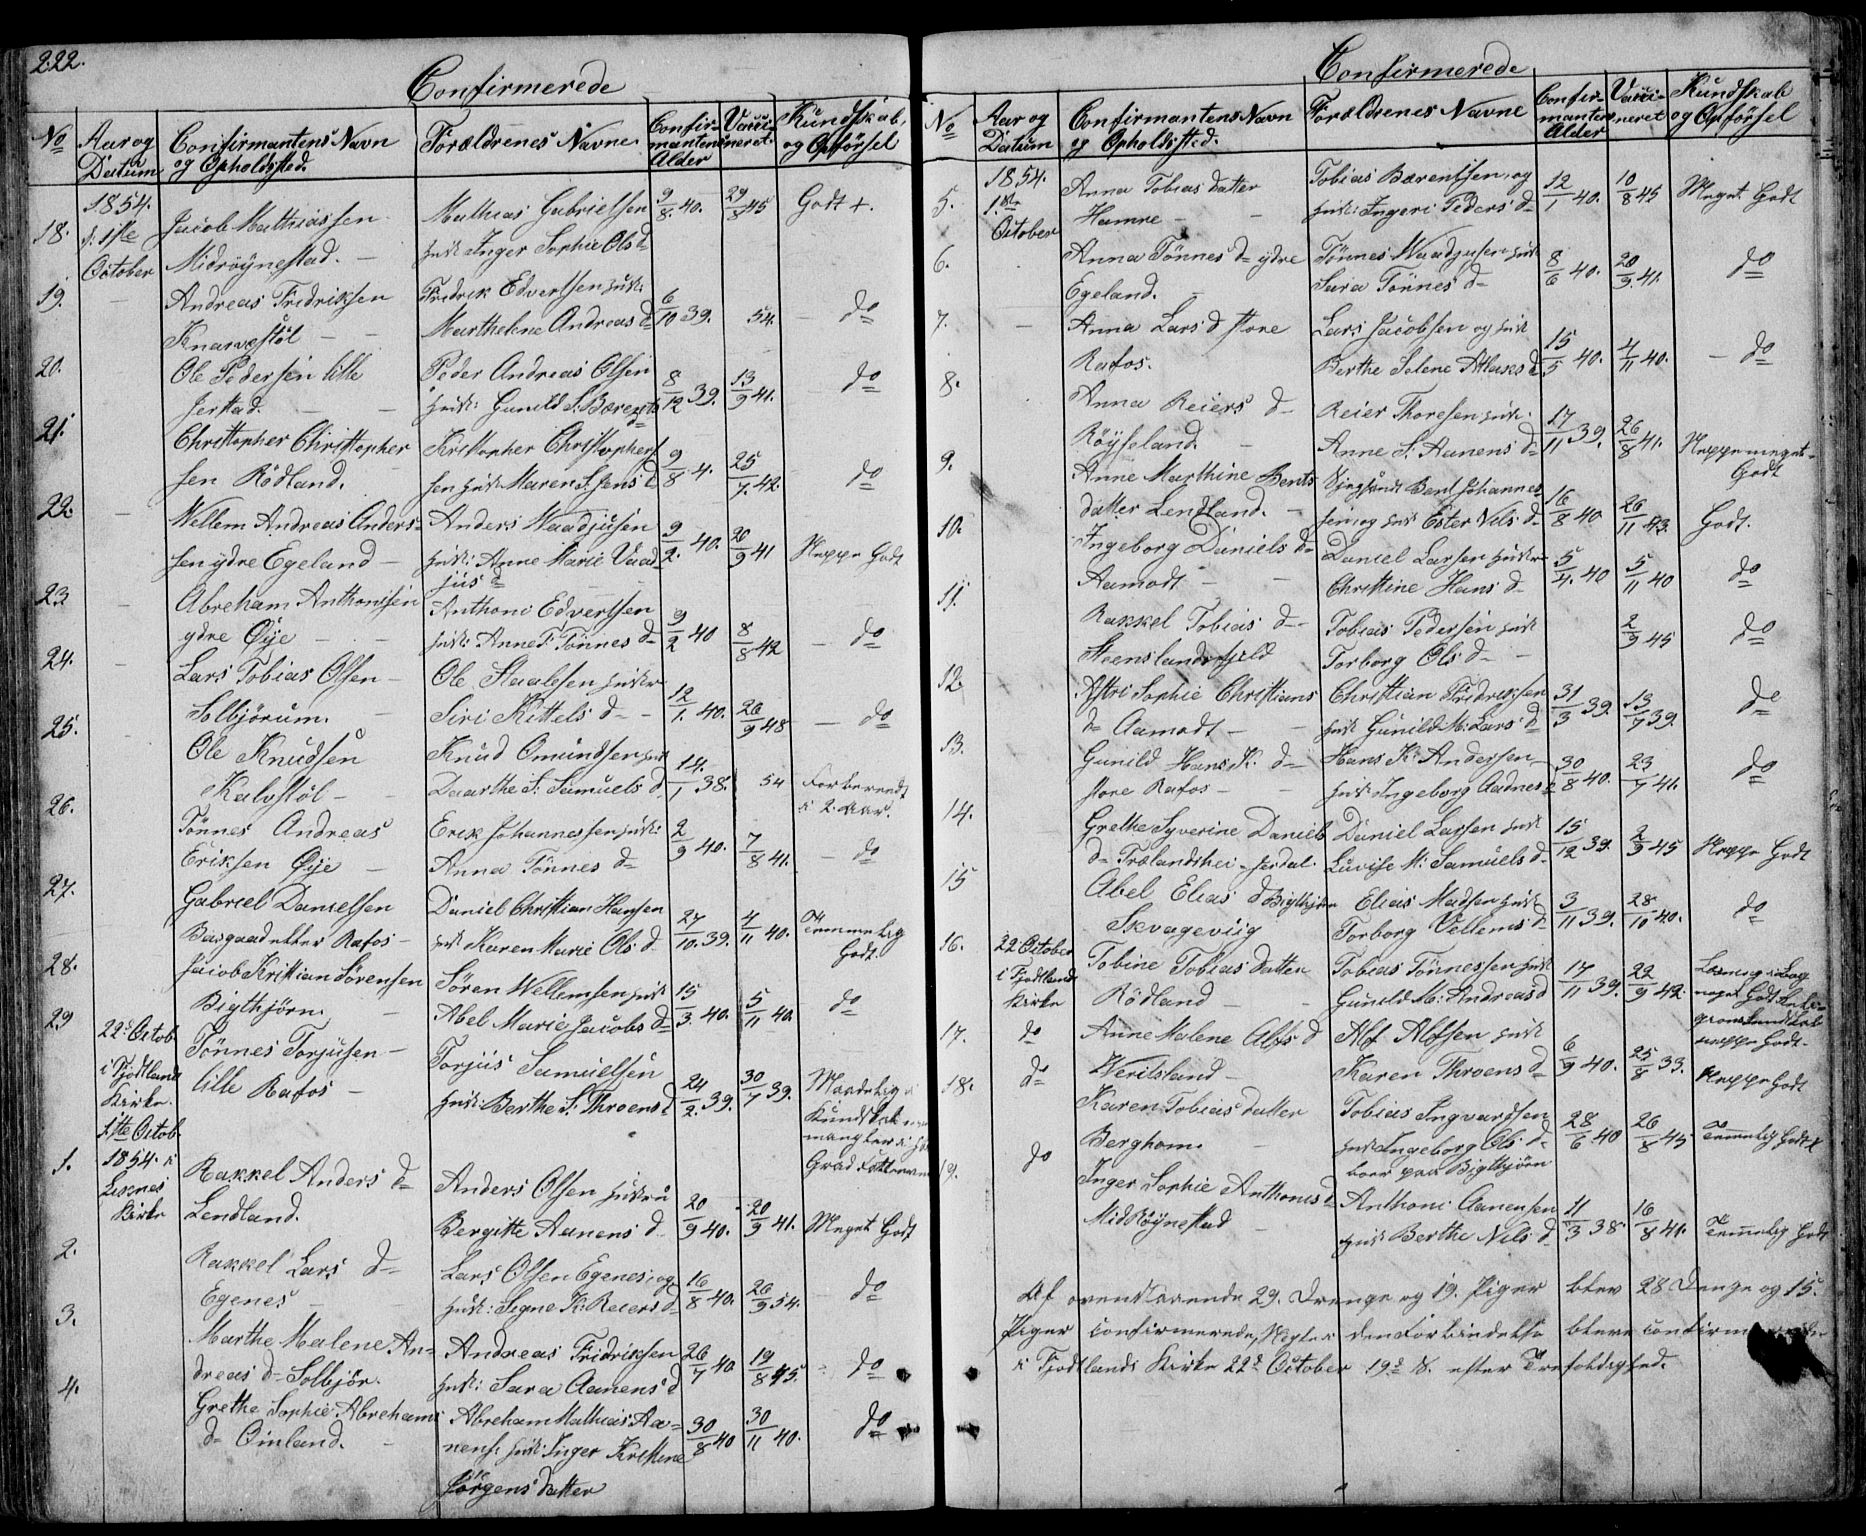 222.
Confirmerede
No
Aar og Datum
Confirmantens Navn og Opholdsted.
Forældrenes Navne
Confirmantens Alder
Vaccineret
Kundskab og Opförsel
18.
1854. d: 1ste October
Jacob Mathiassen
Midröynestad. -
Mathias Gabrielsen
hust: Inger Sophie Ols d=
9/8 40.
29/8 45
Godt +.
19.
Andreas Fredriksen
Knarvestöl -
Fredrik Edvertsen hust:
Marthelene Andreas d=
6/10 39.
54.
do
20.
Ole Pedersen lille
Jerstad. -
Peder Andreas Olsen
hust: Gunild S: Bærents d=
8/12 39.
13/9 41.
do
21.
Christopher Christopher
sen Rödland.
Kristopher Christophers
sen hust Maren S. Jens d
9/8 4.
25/7. 42.
do
22.
Wellem Andreas Anders-
sen ydre Egeland -
Anders Waadjusen
hust: Anne Marie Vaad
jus d=
9/2. 40.
20/9 41
Neppe Godt
23
Abreham Anthonisen
ydre Øye - -
Anthoni Edvertsen
hust: Anne T: Tönnes d=
9/2 40
8/8 42
- do
24.
Lars Tobias Olsen -
Solbjörum. -
Ole Staalesen hustr
Siri Kittels d= -
12/1. 40.
26/9 48
- do
25.
Ole Knudsen
Kalvstöl -
Knud Omundsen hust
Daarthe S: Samuels d
14./1 38.
54
Forberedt
i 2. Aar.
26.
Tönnes Andreas
Eriksen Øye -
Erik Johannessen hust:
Anna Tönnes d=
2/9 40.
7/8 41.
- do
27.
Gabriel Danielsen
Rafos -
Daniel Christian Hansen
hust Karen Marie Ols d=
27/10. 39.
4/11 40.
Temmelig
Godt.
28.
Jacob Kristian Sörensen
Bigthjörn. -
Sören Wellemsen hust
Abel Marie Jacobs d=
15/3. 40.
5/11 40.
do
29
22d Octob.
i Fjotland
Kirke.
Tönnes Torjusen -
lille Rafos -
Torjus Samuelsen
hust: Berthe S: Throens d
24/2. 39.
30/7 39.
Maadelig i
Kundskab
mangler i
Grad
1.
1ste Octob.
1854. i
Liknes
Kirke
Rakkel Anders d=
Lendland.
Anders Olsen hustru
Bergitte Aanens d
20/9 40.
20/9 41.
Meget Godt
2.
Rakkel Lars d=
Egenes -
Lars Olsen Egenes, og
hust: Signe K: Reiers d=
16/8 40.
26/9 54.
do
3.
Marthe Malene An=
dreas d= Solbjör.
Andreas Fridriksen
hust: Sara Aanens d
26/7 40
19/8 45.
do
4.
Grethe Sophie Abrehams
d= Omland. -
Abreham Mathias Aa=
nens. hust: Inger Kristine
Jörgens datter
30/8 40
30/11 40.
do
Confirmerede
No
Aar og Datum
Confirmantens Navn og Opholdssted.
Forældrenes Navne
Confirmantens Alder
Vaccineret
Kundskab og Opførsel
5.
1854.
1ste
October
Anna Tobias datter
Hamre - -
Tobias Bærentsen, og
hust: Ingeri Peders d=
12/1 40.
10/8 45
Meget Godt
6.
Anna Tönnes d= ydre
Egeland. -
Tönnes Waadjusen hust
Sara Tönnes d=
8/6 40.
20/9. 41.
do
7.
Anna Lars d store
Rafos.
Lars Jacobsen og hust
Berthe Selene Atlaks d
15/5 40.
4/11 40.
- do
8.
Anna Reiers d=
Röyseland. -
Reier Thoresen hust.
Anne S. Aanens d=
17/11 39.
26/8 41.
Neppe meget
Godt
9.
Anne Marthine Bents
datter Lendland. -
Bent Johannes
sen og hust Ester Nils d=
16/8 40
26/11 43.
Godt.
10.
Ingeborg Daniels d=
Aamodt - -
Daniel Larsen hustru
Christine Hans d=
5/4. 40
5/11 40
do
11.
Rakkel Tobias d=
Steenslandsfjeld
Tobias Pedersen hust
Torborg Ols d= -
2/9 45
do
12.
Astri Sophie Christians
d= Aamodt -
Christian Fredriksen
hust Gunild M: Lars d=
31/3 39.
13/7 39.
do
13.
Gunild Hans K. d=
store Rafos - -
Hans K: Andersen
hust Ingeborg Aadnes d
30/8 40.
23/7 41.
do
14.
Grethe Syverine Daniels
d= Trælandshei - Jerdal.
Daniel Larsen hust
Luvise M: Samuels d=
15/12 39.
2/9 45
Neppe Godt
15
Abel Elias d Bigthjörn
Skvageviig
Elias Madsen hust
Torborg Vellems d=
3/11 39.
28/10 40.
do
16.
22 October
i Fjodtlands
Kirke
Tobine Tobias datter
Rödland - -
Tobias Tönnessen hust
Gunild M: Andreas d
17/11 39.
22/9 42.
Læsning i Bog
meget Godt
neppe Godt.
17.
do
Anne Malene Alfs d
Werilsland -
Alf Alfsen hust
Karen Throens d=
6/9 40.
25/8 33.
Neppe Godt
18.
do
Karen Tobias datter
Berghom. -
Tobias Ingvardsen
hust Ingeborg Ols d=
boer paa Bigthjörn
28/6 40
26/8 45
Temmelig Godt
19.
do
Inger Sophie Anthonis d=
Mid Röynestad -
Anthoni Aanensen
hust Berthe Nils d=
11/3 38.
16/8 41.
Temmelig Godt
Af ovenstaaende 29. Drenge og 19. Piger blev 28 Drenge og 15.
Piger confirmerede,
i Fjodtlands Kirke 22d October 19d S. efter Trefoldighed.